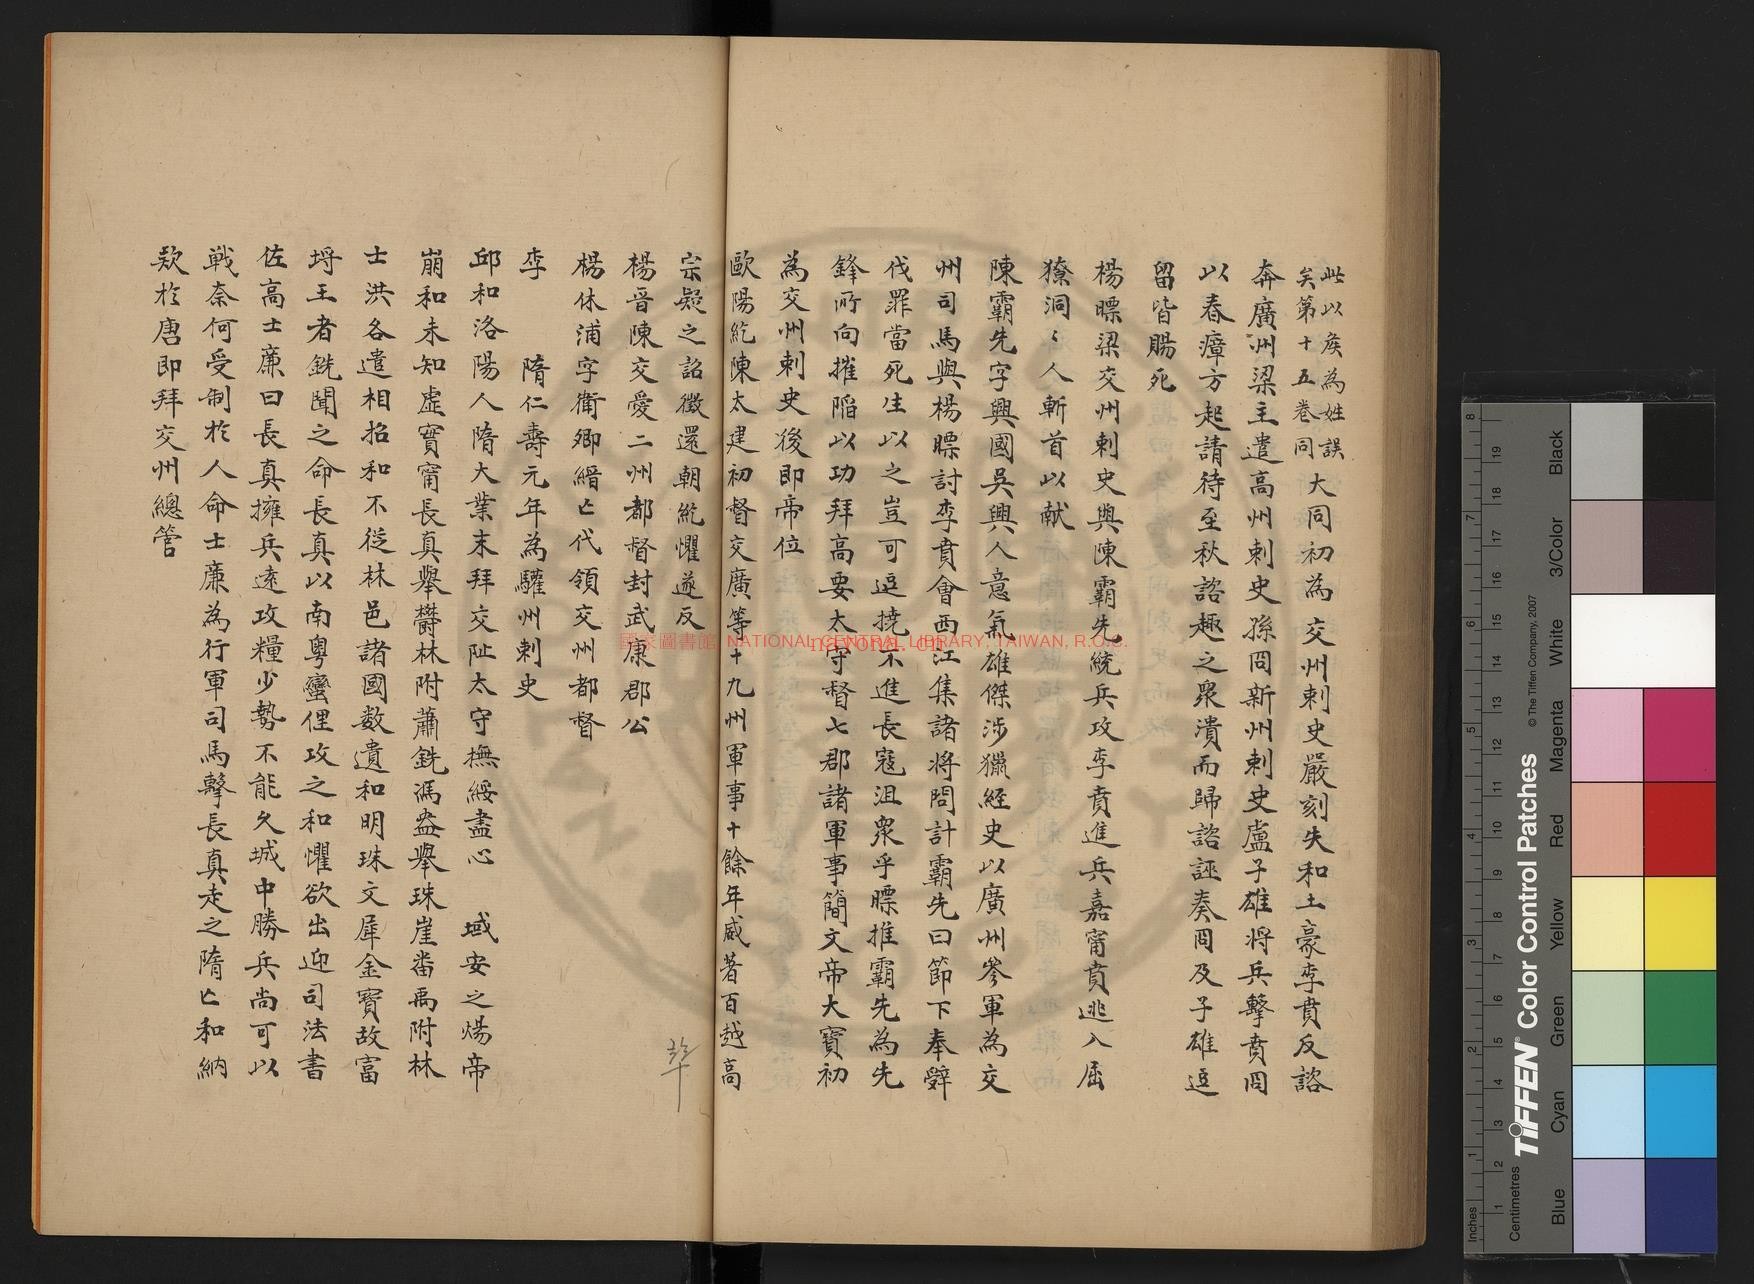 此以侯為姓誤
矣第十五卷同
大同初為交州刺史嚴刻失和土豪李賁反諮
奔廣州梁主遣高州刺史孫冏新州刺史盧子雄将兵擊賁冏
以春瘴方起請待至秋諮趣之衆潰而歸諮誣奏冏及子雄逗
留皆賜死
楊㬓梁交州刺史與陳霸先統兵攻李賁進兵嘉甯賁逃入屈
獠洞〻人斬首以献
陳霸先字興國吳興人意氣雄傑涉獵経史以廣州叅軍為交
州司馬與楊㬓討李賁會西江集諸将問計霸先曰節下奉辤
伐罪當死生以之豈可逗撓不進長寇沮衆乎㬓推霸先為先
鋒所向摧陷以功拜高要太守督七郡諸軍事簡文帝大寶初
為交州刺史後即帝位
歐陽紇陳太建初督交廣等十九州軍事十餘年威著百越高
宗疑之詔徵還朝紇懼遂反
楊晋陳交愛二州都督封武康郡公
楊休浦字衛卿縉亡代領交州都督
李　　隋仁壽元年為驩州刺史
邱和洛陽人隋大業末拜交阯太守撫綏盡心　域安之煬帝
崩和未知虛實甯長真舉欝林附蕭銑馮盎舉珠崖畨禺附林
士洪各遣相招和不従林邑諸國数遺和明珠文犀金寶故富
埒王者銑聞之命長真以南粤蠻俚攻之和懼欲出迎司法書
佐高士廉曰長真擁兵逺攻糧少勢不能久城中勝兵尚可以
戦奈何受制於人命士廉為行軍司馬擊長真走之隋亡和納
欵於唐即拜交州總管
國家圖書館 NATIONAL CENTRAL LIBRARY, TAIWAN, R.O.C.
TIFFEN® Color Control Patches
© The Tiffen Company, 2007
Inches
Centimetres
Blue
Cyan
Green
Yellow
Red
Magenta
White
3/Color
Black